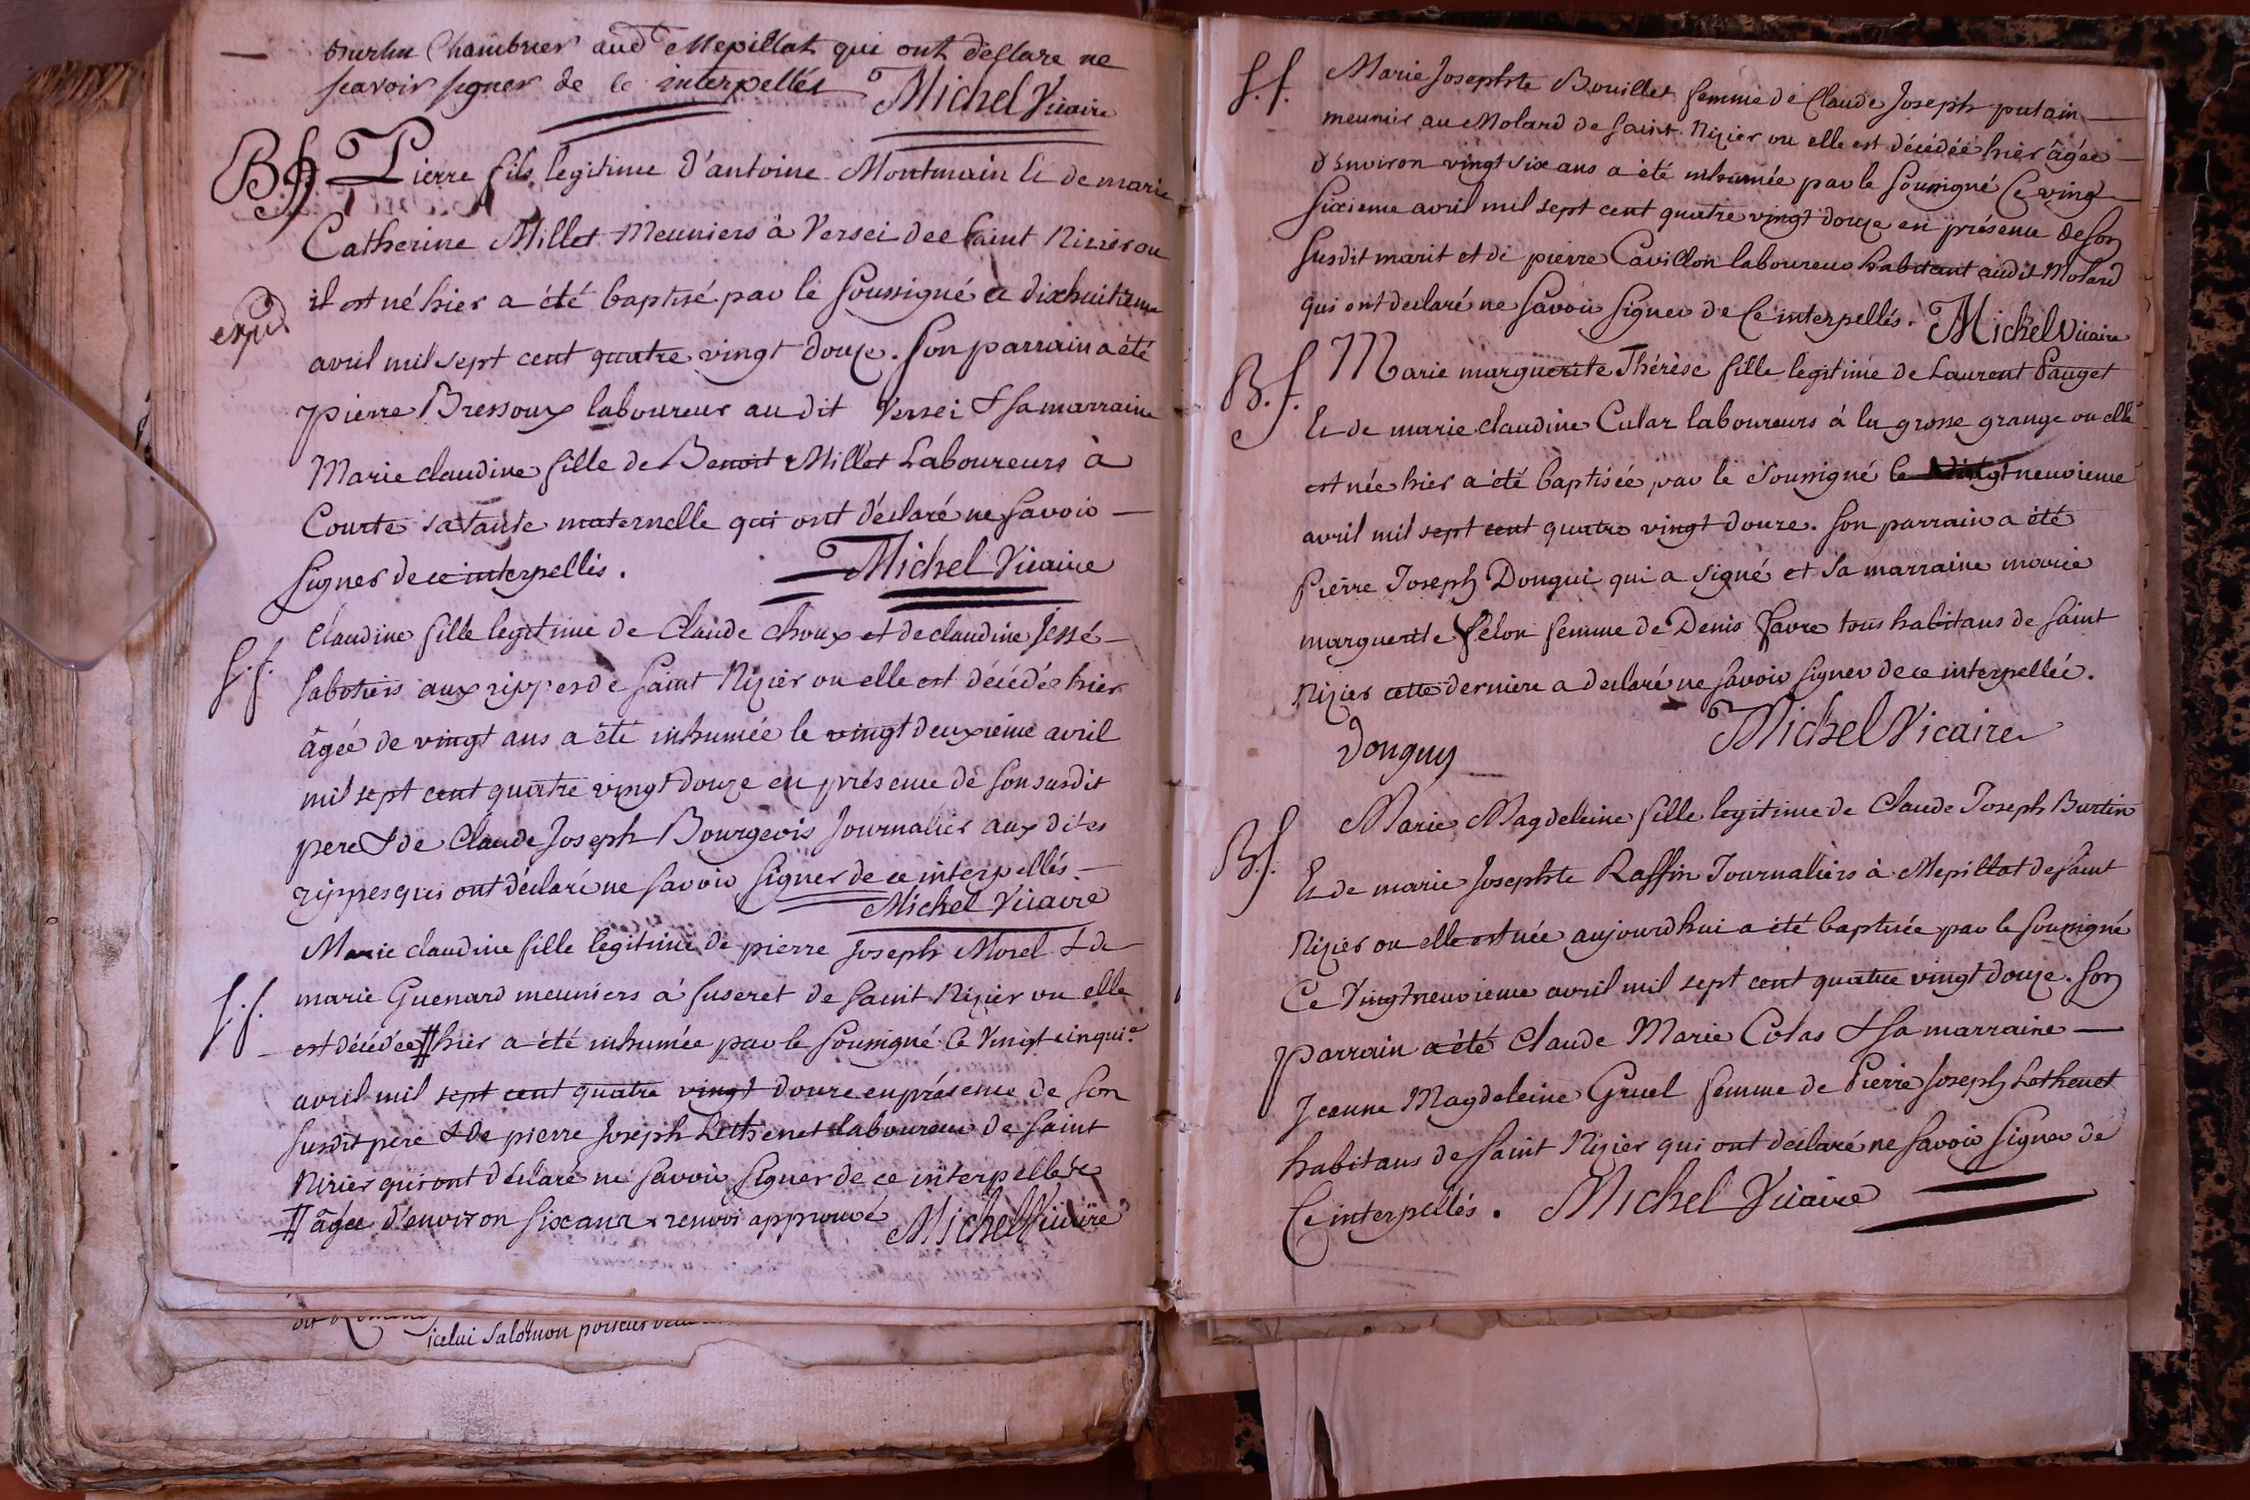 Chambrier aud.t Mepillat qui ont declare ne
scavoir signer de ce interpellés Michel Vicaire
B.f. Pierre fils legitime d'antoine Montmain Et de marie
Catherine Millet Meuniers à Versei dee Saint Nizier ou
il est né hier a été baptisé par le soussigné ce dixhuitieme
expd
avril mil sept cent quatre vingt douze. Son parrain a été
pierre Bressoux laboureur au dit Versei & sa marraine
Marie claudine fille de Benoit Millet Laboureurs à
Courte sa tante maternelle qui ont déclaré ne savoir
signer de ce interpellés. Michel Vicaire
S.f. Claudine fille legitime de Claude choux et de claudine Jessé
sabotiers aux rippes de saint Nizier ou elle est décédée hier
âgée de vingt ans a été inhumée le vingt deuxieme avril
mil sept cent quatre vingt douze en présence de son susdit
pere & de Claude Joseph Bourgeois Journalier aux dites
rippes qui ont déclaré ne savoir signer de ce interpellés.
Michel Vicaire
Marie claudine fille legitime de pierre Joseph Morel & de
S.f. marie Guenard meuniers à suseret de saint Nizier ou elle
est décédée ⧺ hier a été inhumée par le soussigné le Vingt cinqui.e
avril mil sept cent quatre vingt douze en présence de son
susdit pere & de pierre Joseph Lethenet laboureur de saint
Nizier qui ont déclaré ne savoir signer de ce interpellés
⧺ âgée d'environ six ans renvoi approuvé Michel Vicaire
icelui Salomon
S.f. Marie Josephte Bouillet femme de Claude Joseph putain
meunier au Molard de saint Nizier ou elle est décédée hier âgée
d'environ vingt six ans a été inhumée par le soussigné Ce vingt
sixieme avril mil sept cent quatre vingt douze en présence de son
susdit marit et de pierre Cavillon laboureur habitant audit Molard
qui ont declaré ne savoir signer de Ce interpellés. Michel Vicaire
B.f. Marie marguerite Thérèse fille legitime de Laurent Pauget
Et de marie claudine Cular laboureurs à la grosse grange ou elle
est née hier a été baptisée par le soussigné le Vingt neuvieme
avril mil sept cent quatre vingt douze. son parrain a été
Pierre Joseph Dongui qui a signé et sa marraine marie
marguerite félon femme de Denis favre tous habitans de saint
Nizier cette derniere a declaré ne savoir signer de ce interpellée.
Donguy Michel Vicaire
B.f. Marie Magdeleine fille legitime de Claude Joseph Burtin
Et de marie Josephte Raffin Journaliers à Mepillat de saint
Nizier ou elle est née aujourdhui a été baptisée par le soussigné
Ce Vingt neuvieme avril mil sept cent quatre vingt douze. son
parrain a été Claude Marie Colas & sa marraine
Jeanne Magdeleine Gruel femme de Pierre Joseph Lethenet
habitans de saint Nizier qui ont declaré ne savoir signer de
Ce interpellés. Michel Vicaire